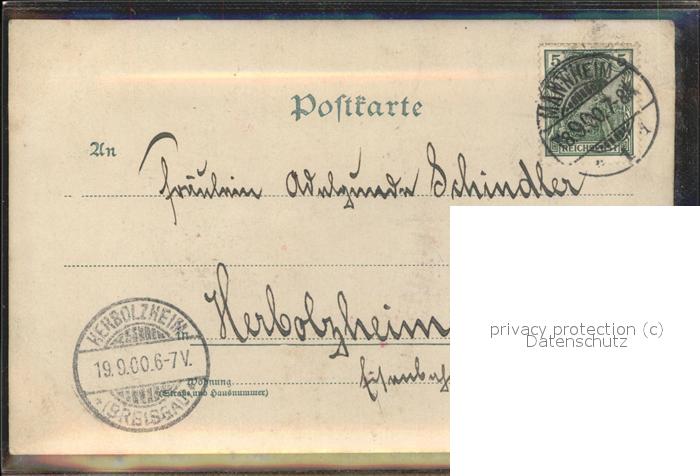 5 5
REICHSPOST
MANNHEIM
18.9.00.7-8N.
Postkarte
An
Fräulein Adelgunde Schindler
in Herbolzheim
Eisenbah
Wohnung
(Straße und Hausnummer)
HERBOLZHEIM
19.9.00.6-7V.
(BREISGAU)
privacy protection (c)
Datenschutz